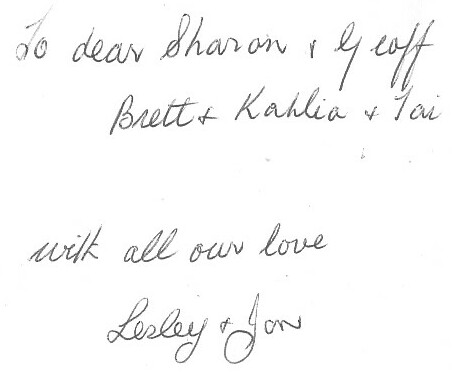 To dear Sharon + Geoff
Brett + Kahlia + Tai
with all our love
Lesley + Jon